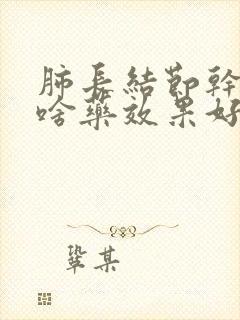 肺長結節幹
啥藥效果好
鞏某